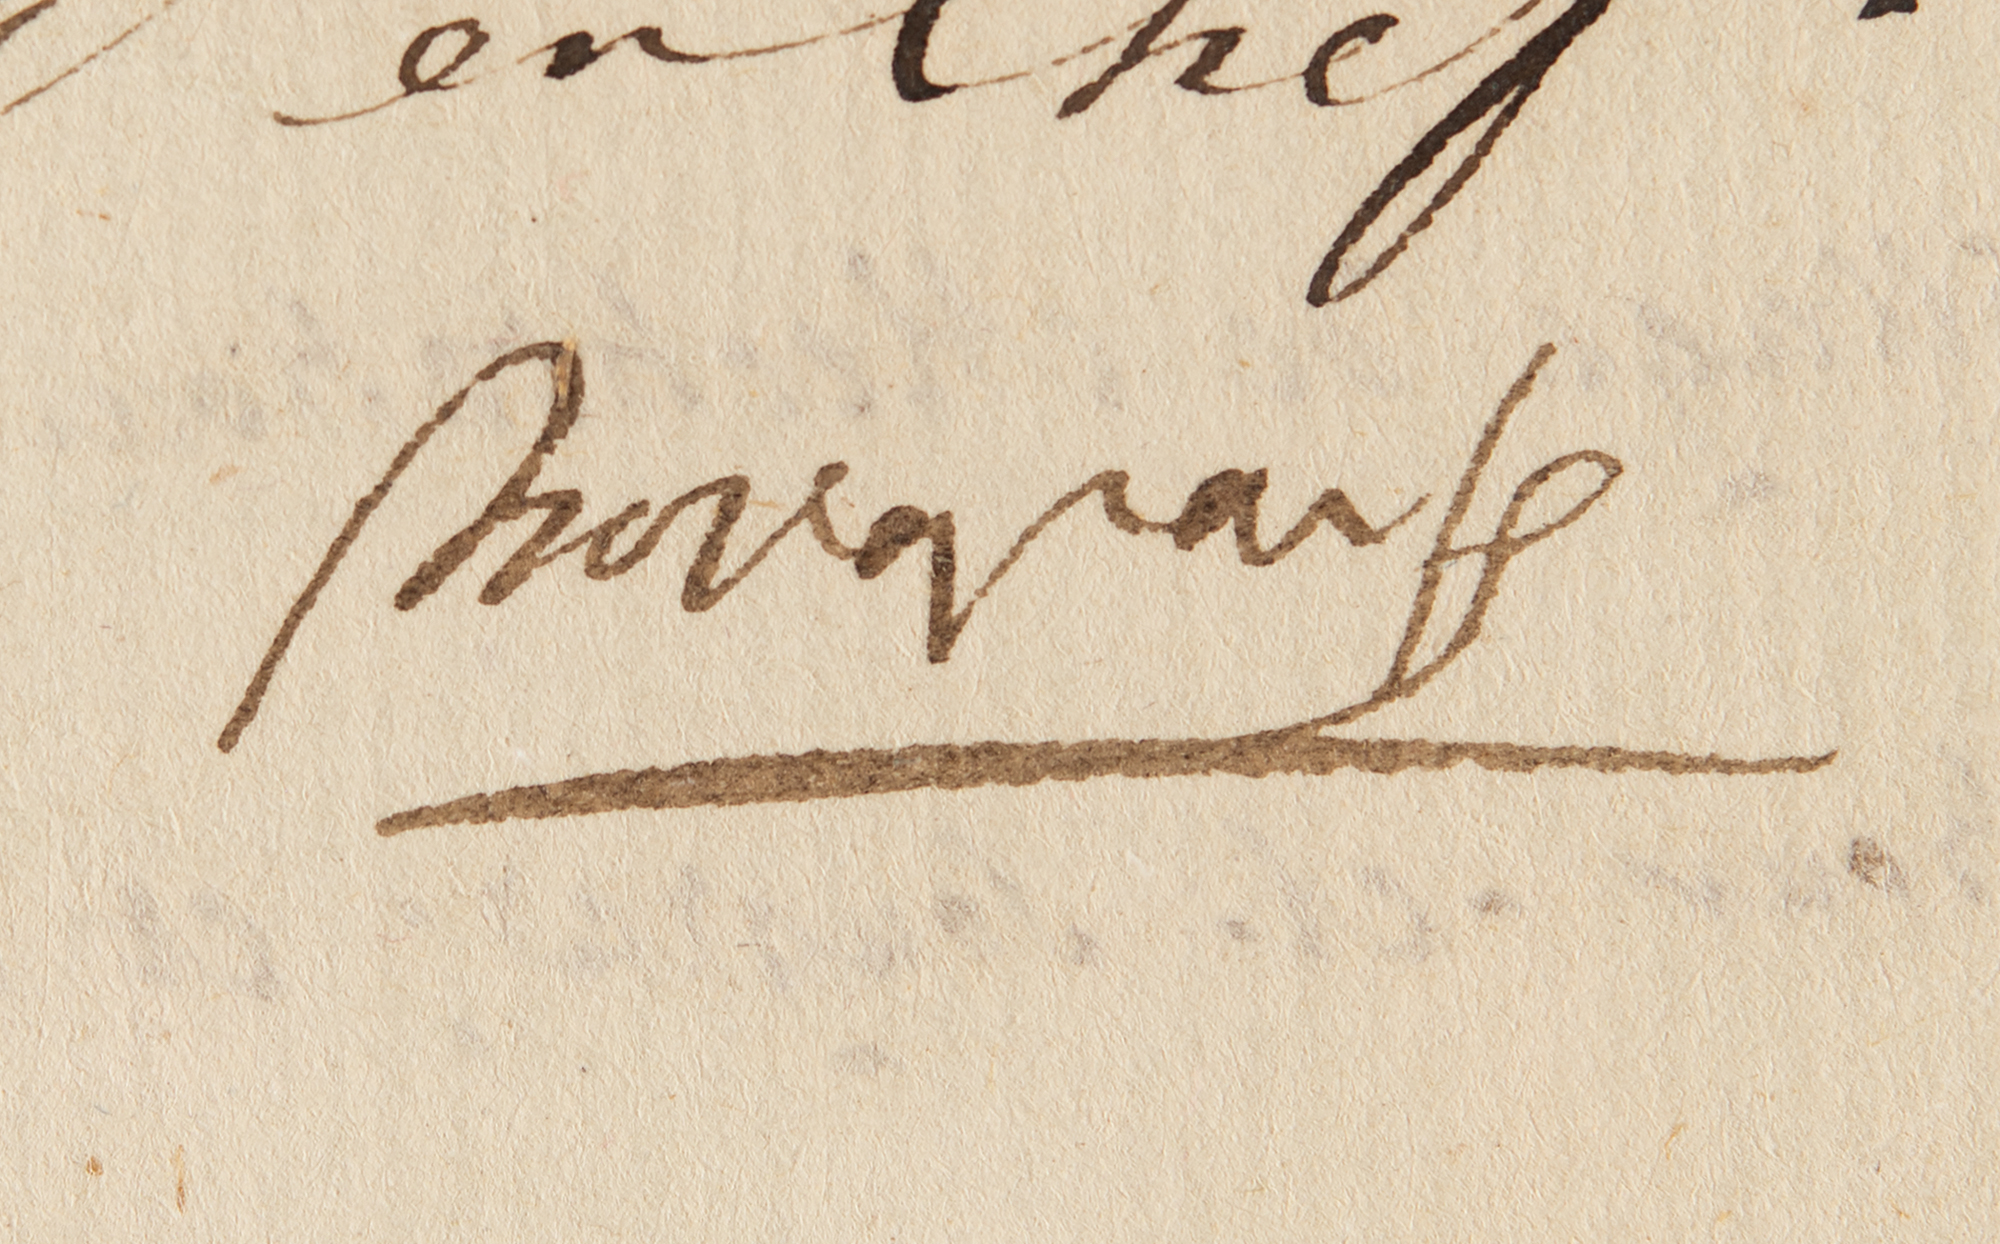 en chef
Bonaparte